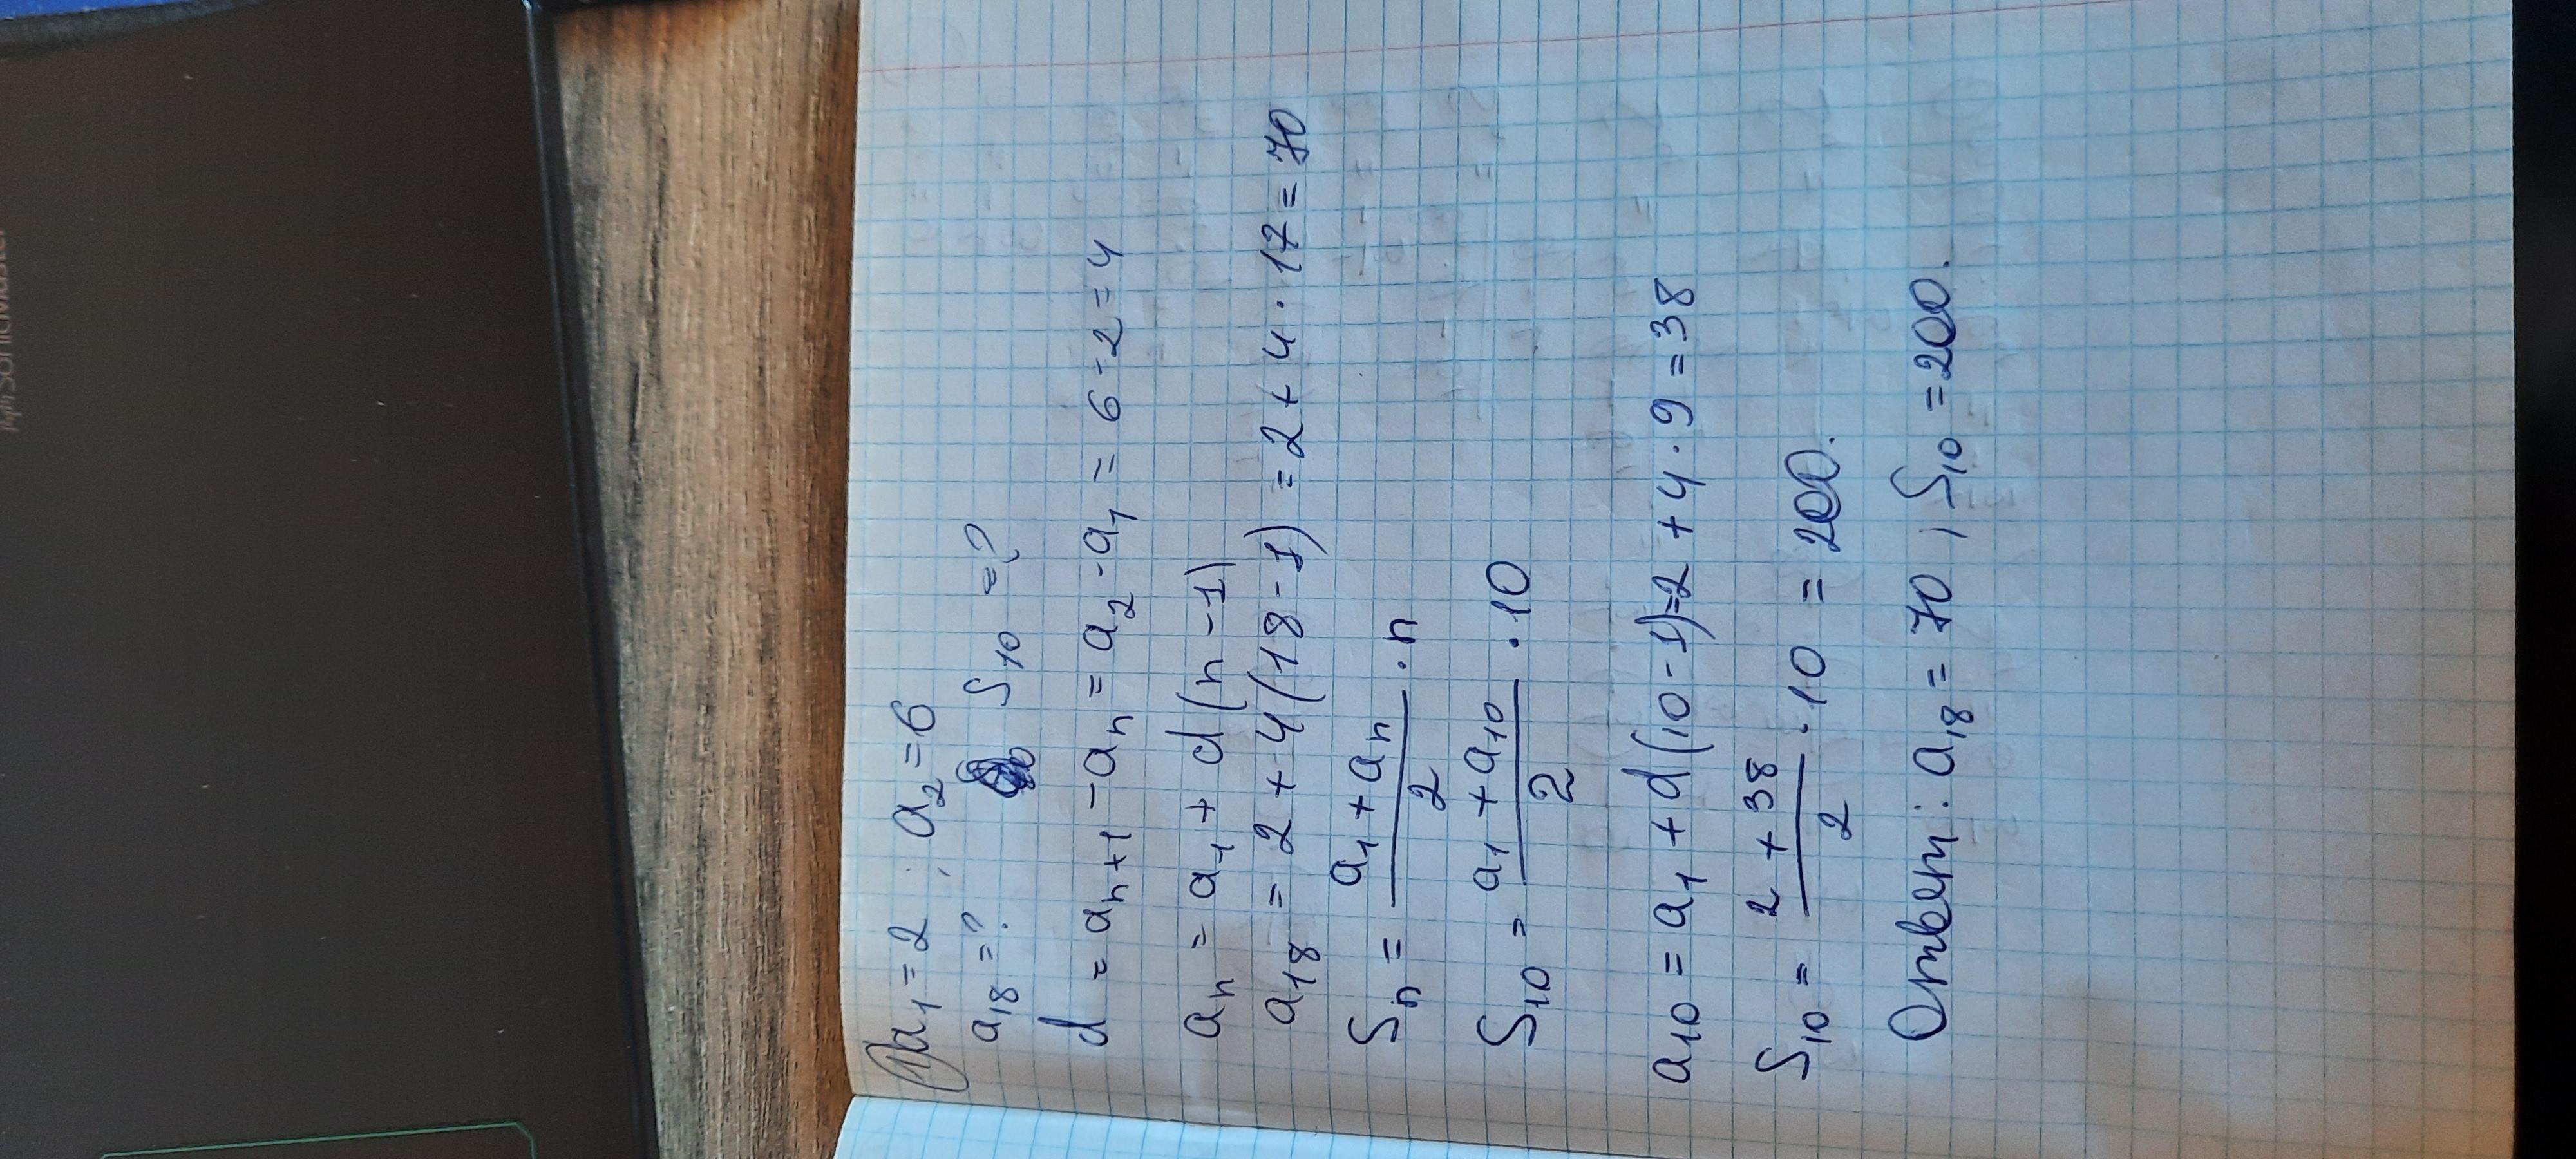 1) a₁ = 2 ; a₂ = 6
a₁₈ = ? S₁₀ = ?
d = aₙ₊₁ - aₙ = a₂ - a₁ = 6 - 2 = 4
aₙ = a₁ + d(n - 1)
a₁₈ = 2 + 4(18 - 1) = 2 + 4 · 17 = 70
Sₙ = (a₁ + aₙ)/2 · n
S₁₀ = (a₁ + a₁₀)/2 · 10
a₁₀ = a₁ + d(10 - 1) = 2 + 4 · 9 = 38
S₁₀ = (2 + 38)/2 · 10 = 200.
Ответ: a₁₈ = 70 ; S₁₀ = 200.